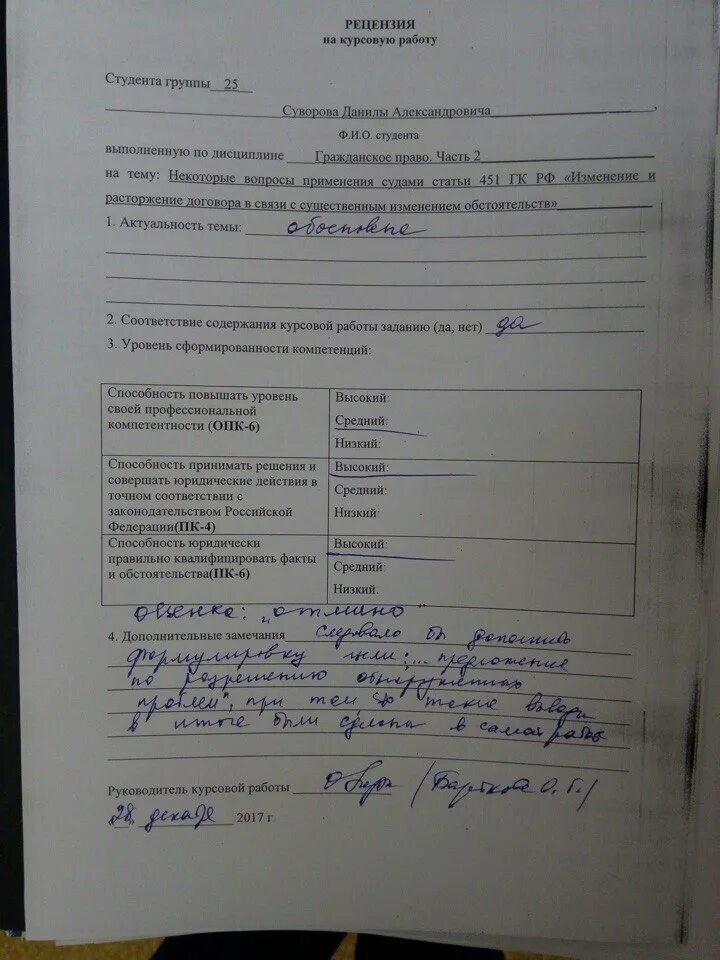 РЕЦЕНЗИЯ
на курсовую работу
Студента группы 25
Суворова Данилы Александровича
Ф.И.О. студента
выполненную по дисциплине Гражданское право. Часть 2
на тему: Некоторые вопросы применения судами статьи 451 ГК РФ «Изменение и
расторжение договора в связи с существенным изменением обстоятельств»
1. Актуальность темы:
2. Соответствие содержания курсовой работы заданию (да, нет) да
3. Уровень сформированности компетенций:
Способность повышать уровень
своей профессиональной
компетентности (ОПК-6)
Высокий:
Средний:
Низкий:
Способность принимать решения и
совершать юридические действия в
точном соответствии с
законодательством Российской
Федерации(ПК-4)
Высокий:
Средний:
Низкий:
Способность юридически
правильно квалифицировать факты
и обстоятельства(ПК-6)
Высокий:
Средний:
Низкий:
оценка: „отлично"
4. Дополнительные замечания следовало бы дополнить
формулировку цели: „... предложение
по разрешению обнаруженных
проблем", при том, что такие выводы
в итоге были сделаны в самой работе
Руководитель курсовой работы (Барткова О. Г.)
„28" декабря 2017 г.